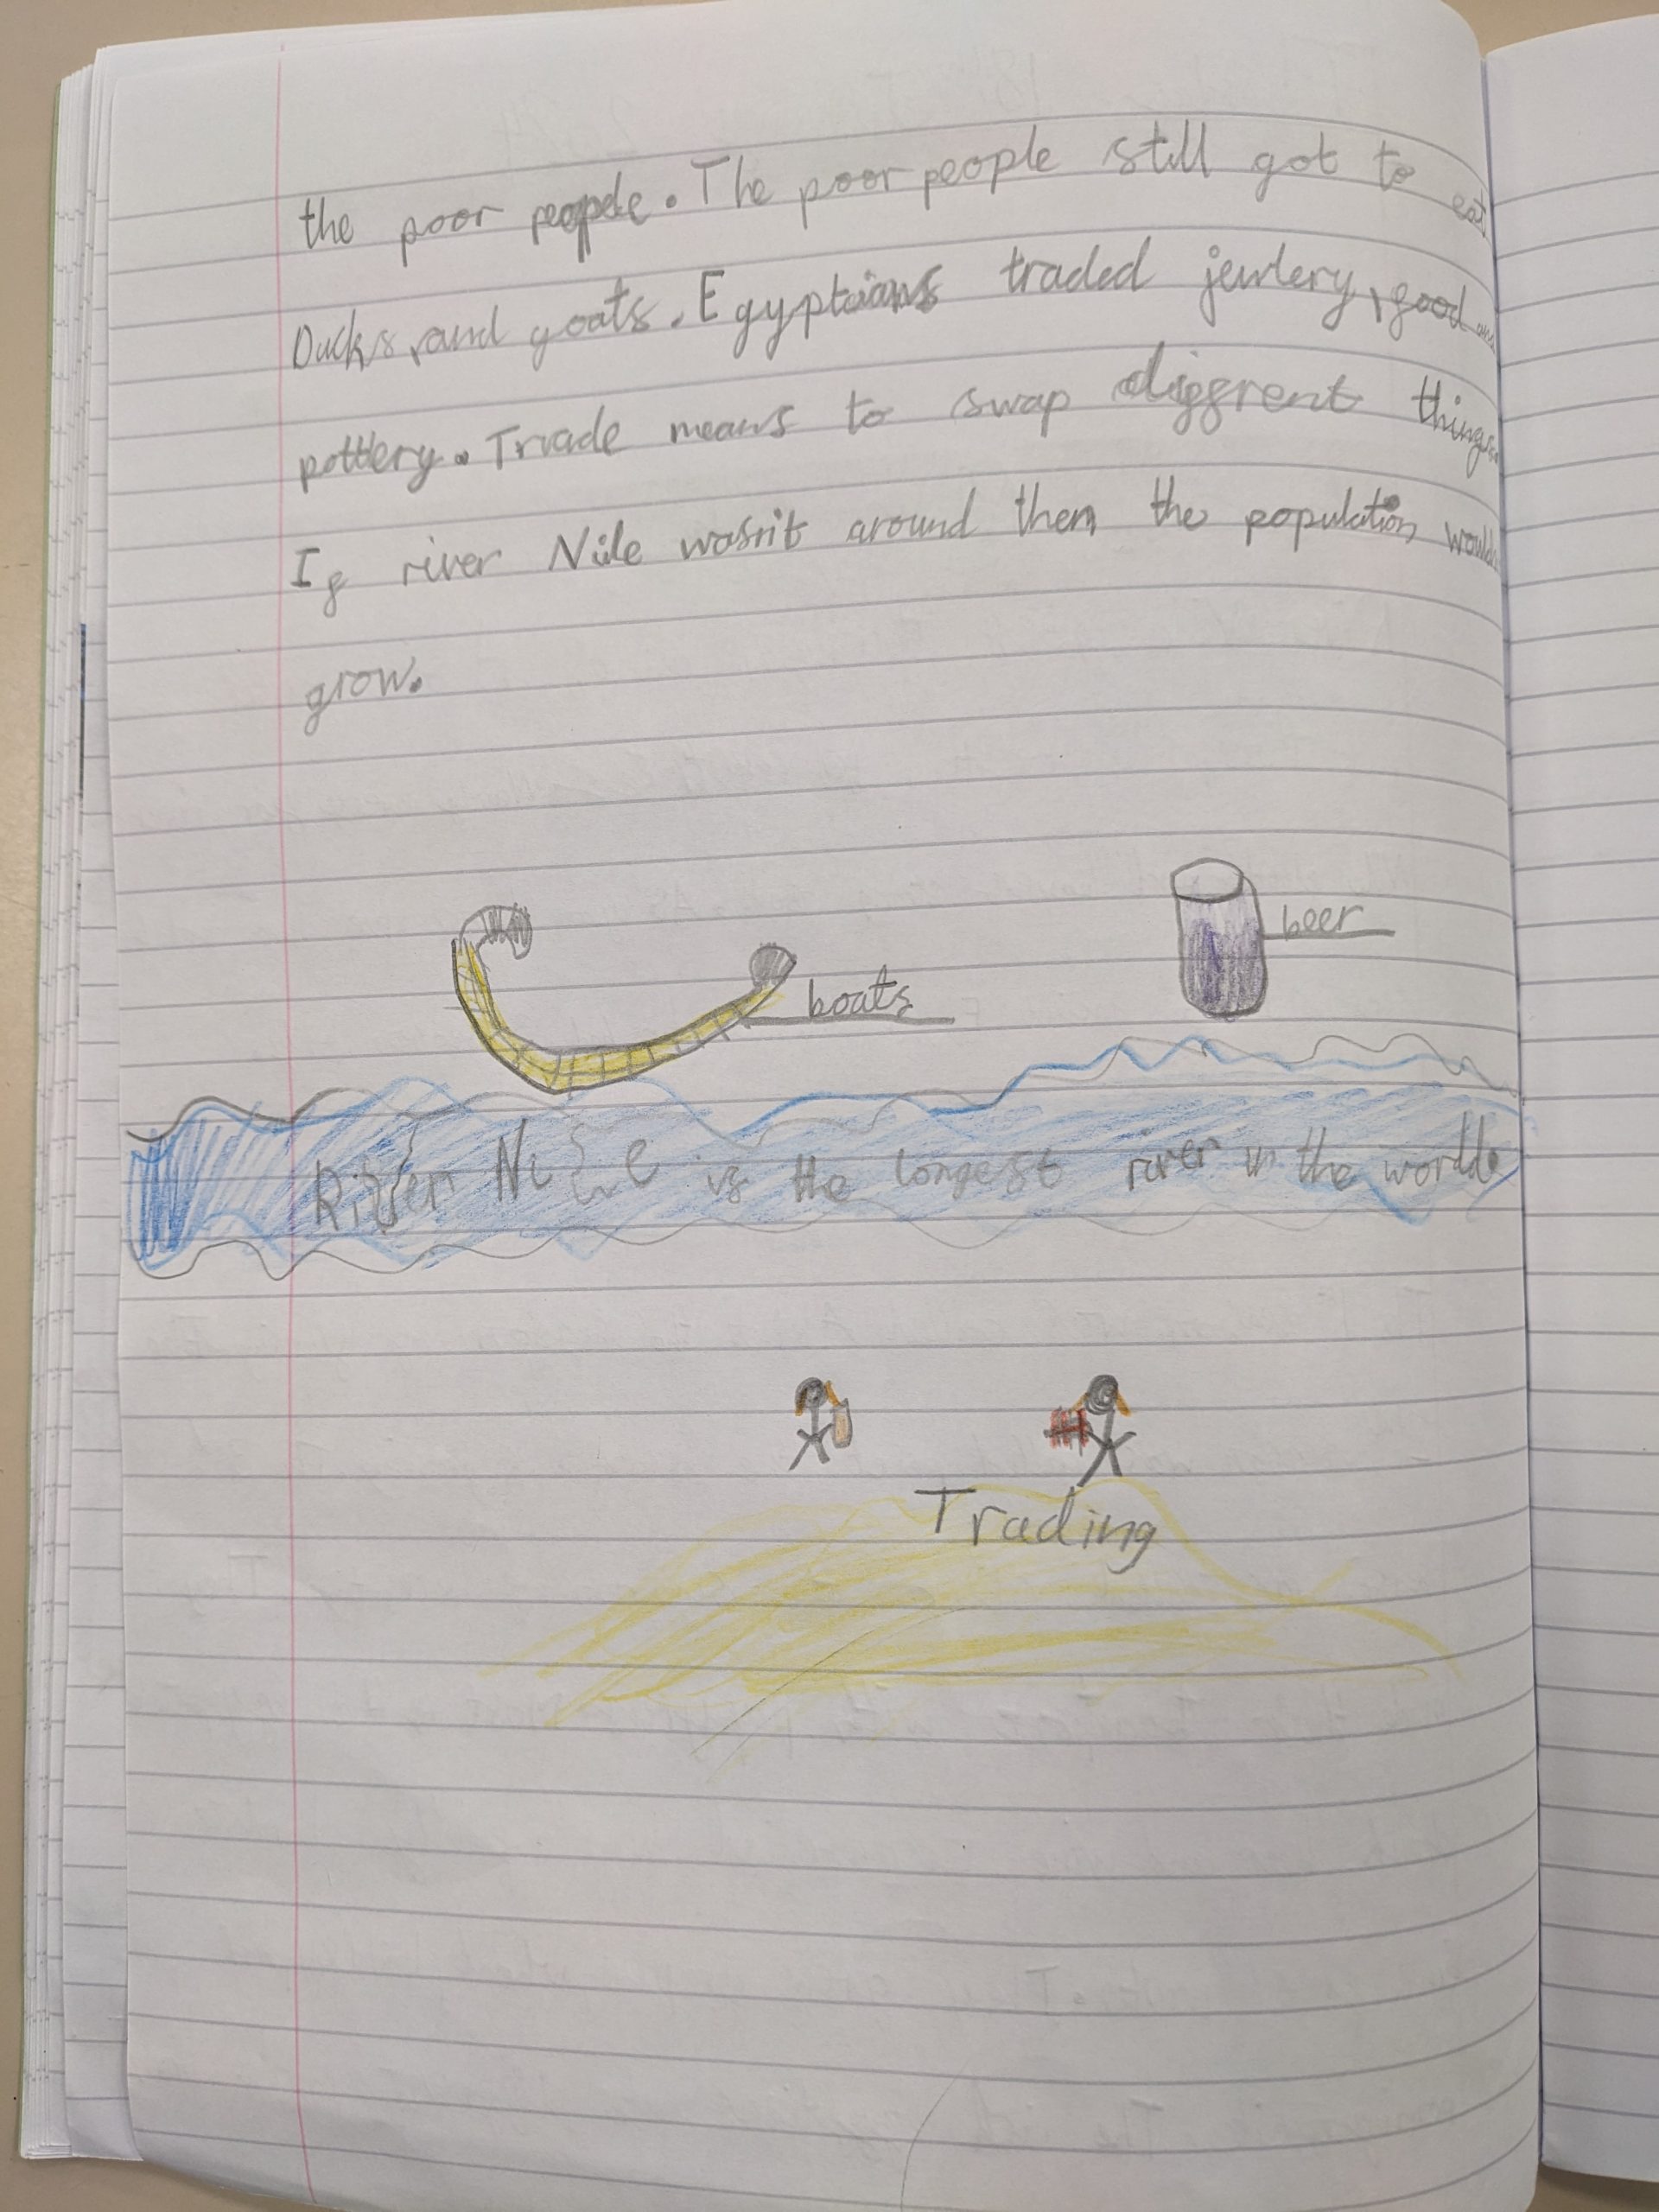 the poor people. The poor people still got to eat
Ducks, and goats. Egyptians traded jewlery, food and
pottery. Trade means to swap diffrent things.
If river Nile wasn't around then the population would
grow.
beer
boats
River Nile is the longest river in the world.
Trading